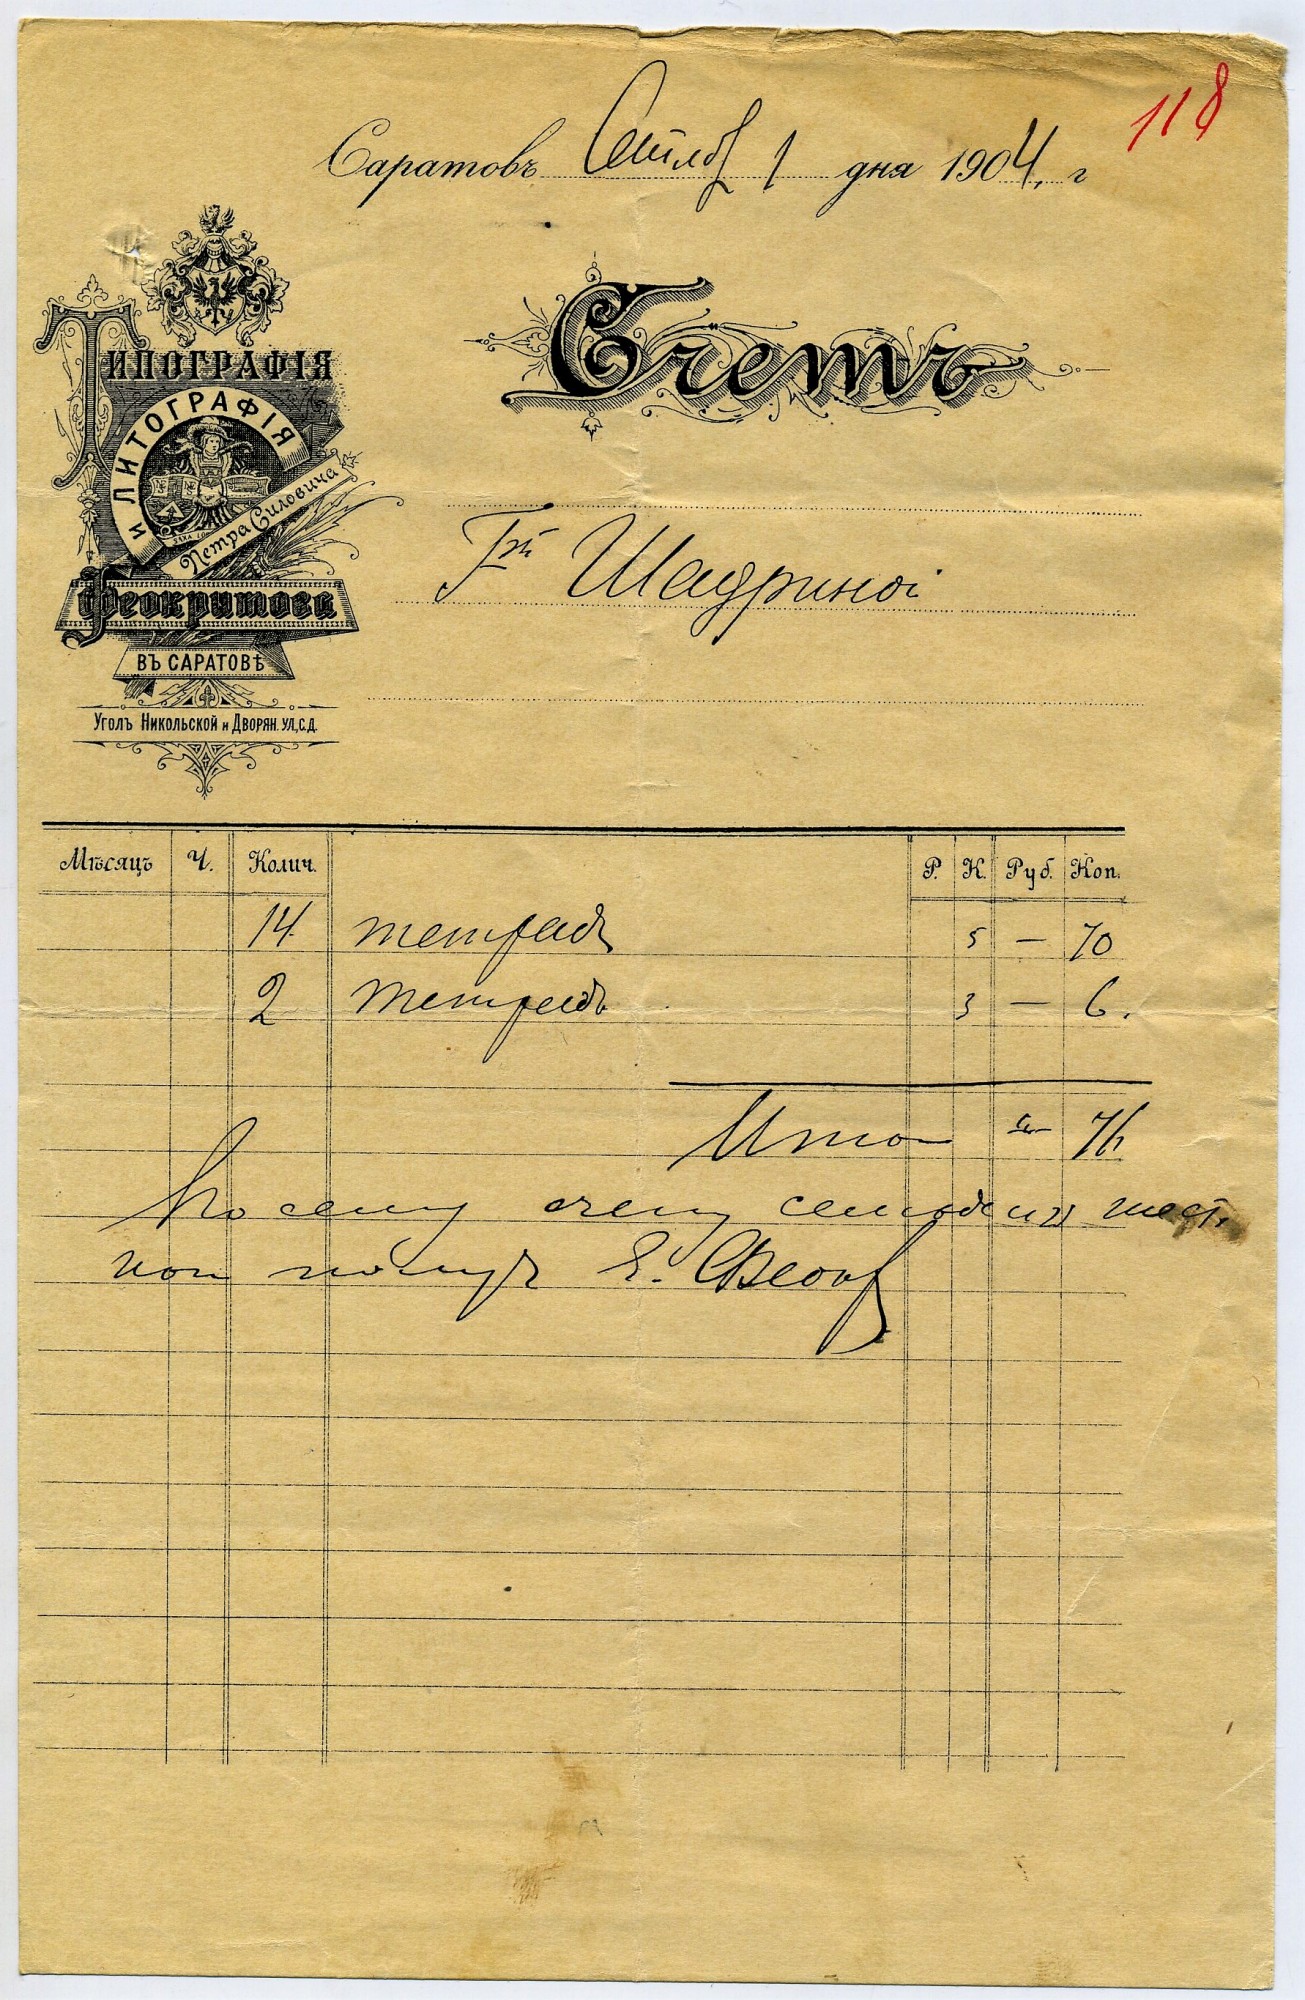 118
Саратовъ Сентяб 1 дня 1904, г
Типографія
и Литографія
Петра Силовича
Феокритова
въ Саратовѣ
Уголъ Никольской и Дворян. ул., с. д.
Счетъ
Г-жѣ Шадриной
Мѣсяцъ Ч. Колич. Р. К. Руб. Коп.
14 тетрадь 5 — 70
2 тетрадь 3 — 6.
Итого 76
По сему счету семьдесят шест.
коп получ Е. Феок